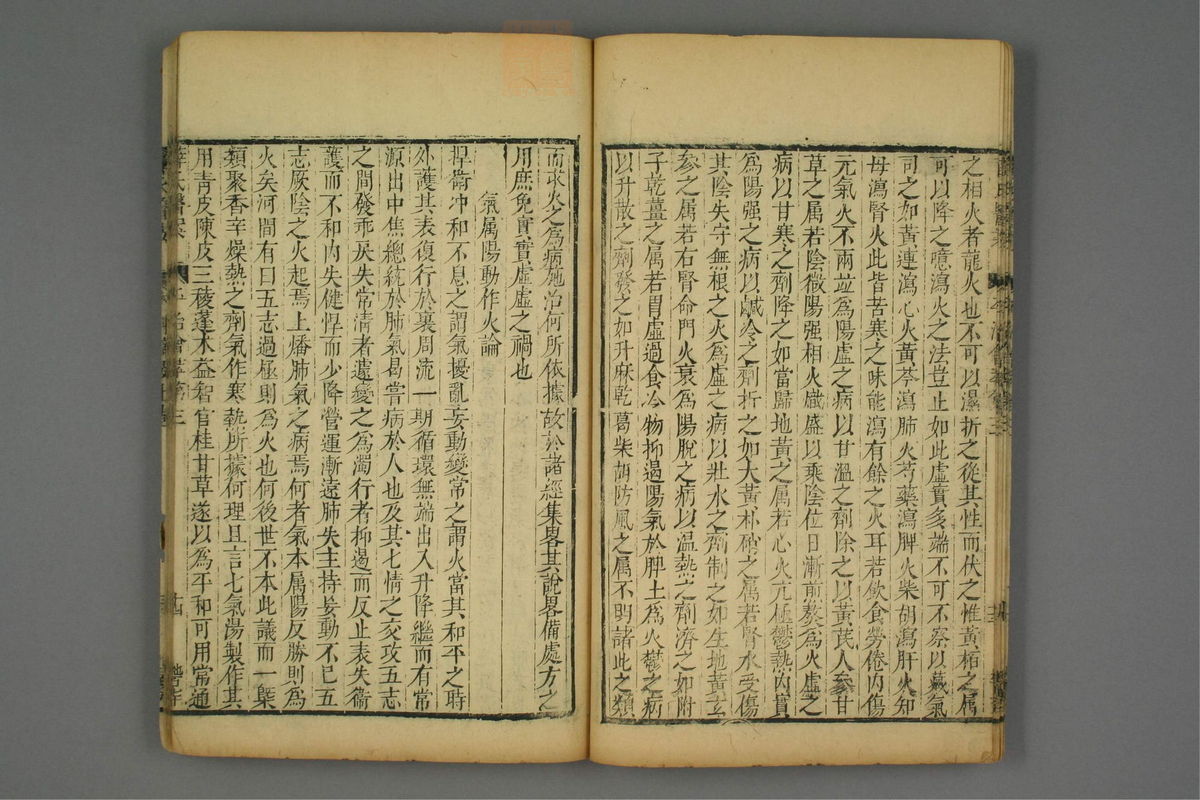 之相火者龍火也不可以濕折之從其性而伏之惟黃栢之屬
可以降之噫瀉火之法豈止如此虛實多端不可不察以藏氣
司之如黃連瀉心火黃芩瀉肺火芍藥瀉脾火柴胡瀉肝火知
母瀉腎火此皆苦寒之味能瀉有餘之火耳若飲食勞倦內傷
元氣火不兩立為陽虛之病以甘溫之劑除之以黃芪人參甘
草之屬若陰微陽强相火熾盛以乘陰位日漸煎熬為火虛之
病以甘寒之劑降之如當歸地黃之屬若心火亢極鬱熱內實
為陽强之病以鹹冷之劑折之如大黃朴硝之屬若腎水受傷
其陰失守無根之火為虛之病以壯水之劑制之如生地黃玄
參之属若右腎命門火衰為陽脫之病以温熱之劑濟之如附
子乾薑之属若胃虛過食冷物抑遏陽氣於脾土為火鬱之病
以升散之劑發之如升麻乾葛柴胡防風之属不明諸此之類
而求火之為病施治何所依據故於諸經集畧其說畧備處方之
用庶免實實虛虛之禍也
氣属陽動作火論
捍衛冲和不息之謂氣擾亂妄動變常之謂火當其和平之時
外護其表復行於裏周流一期循環無端出入升降繼而有常
源出中焦總統於肺氣曷嘗病於人也及其七情之交攻五志
之間發乖戾失常清者遽變之為濁行者抑遏而反止表失衞
護而不和內失健悍而少降營運漸遠肺失主持妄動不已五
志厥陰之火起焉上燔肺氣之病焉何者氣本属陽反勝則為
火矣河間有曰五志過極則為火也何後世不本此議而一槩
類聚香辛燥熱之劑氣作寒熱所據何理且言七氣湯製作其
用青皮陳皮三稜蓬术益智官桂甘草遂以為平和可用常通